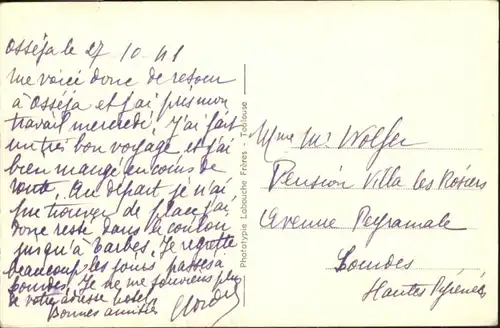 Osséja le 27 10 41
me voici donc de retour
à Osséja et j'ai pris mon
travail mercredi. J'ai fait
un très bon voyage et j'ai
bien mangé en cours de
route. Au départ je n'ai
pu trouver de place j'ai
donc resté dans le couloir
jusqu'à Tarbes. Je regrette
beaucoup les jours passés à
Lourdes. Je ne me souviens plus
de votre adresse hotel
Bonnes amitiés
Phototypie Labouche Frères - Toulouse
Mme Mr Wolfer
Pension Villa les Rosiers
Avenue Peyramale
Lourdes
Hautes Pyrénées